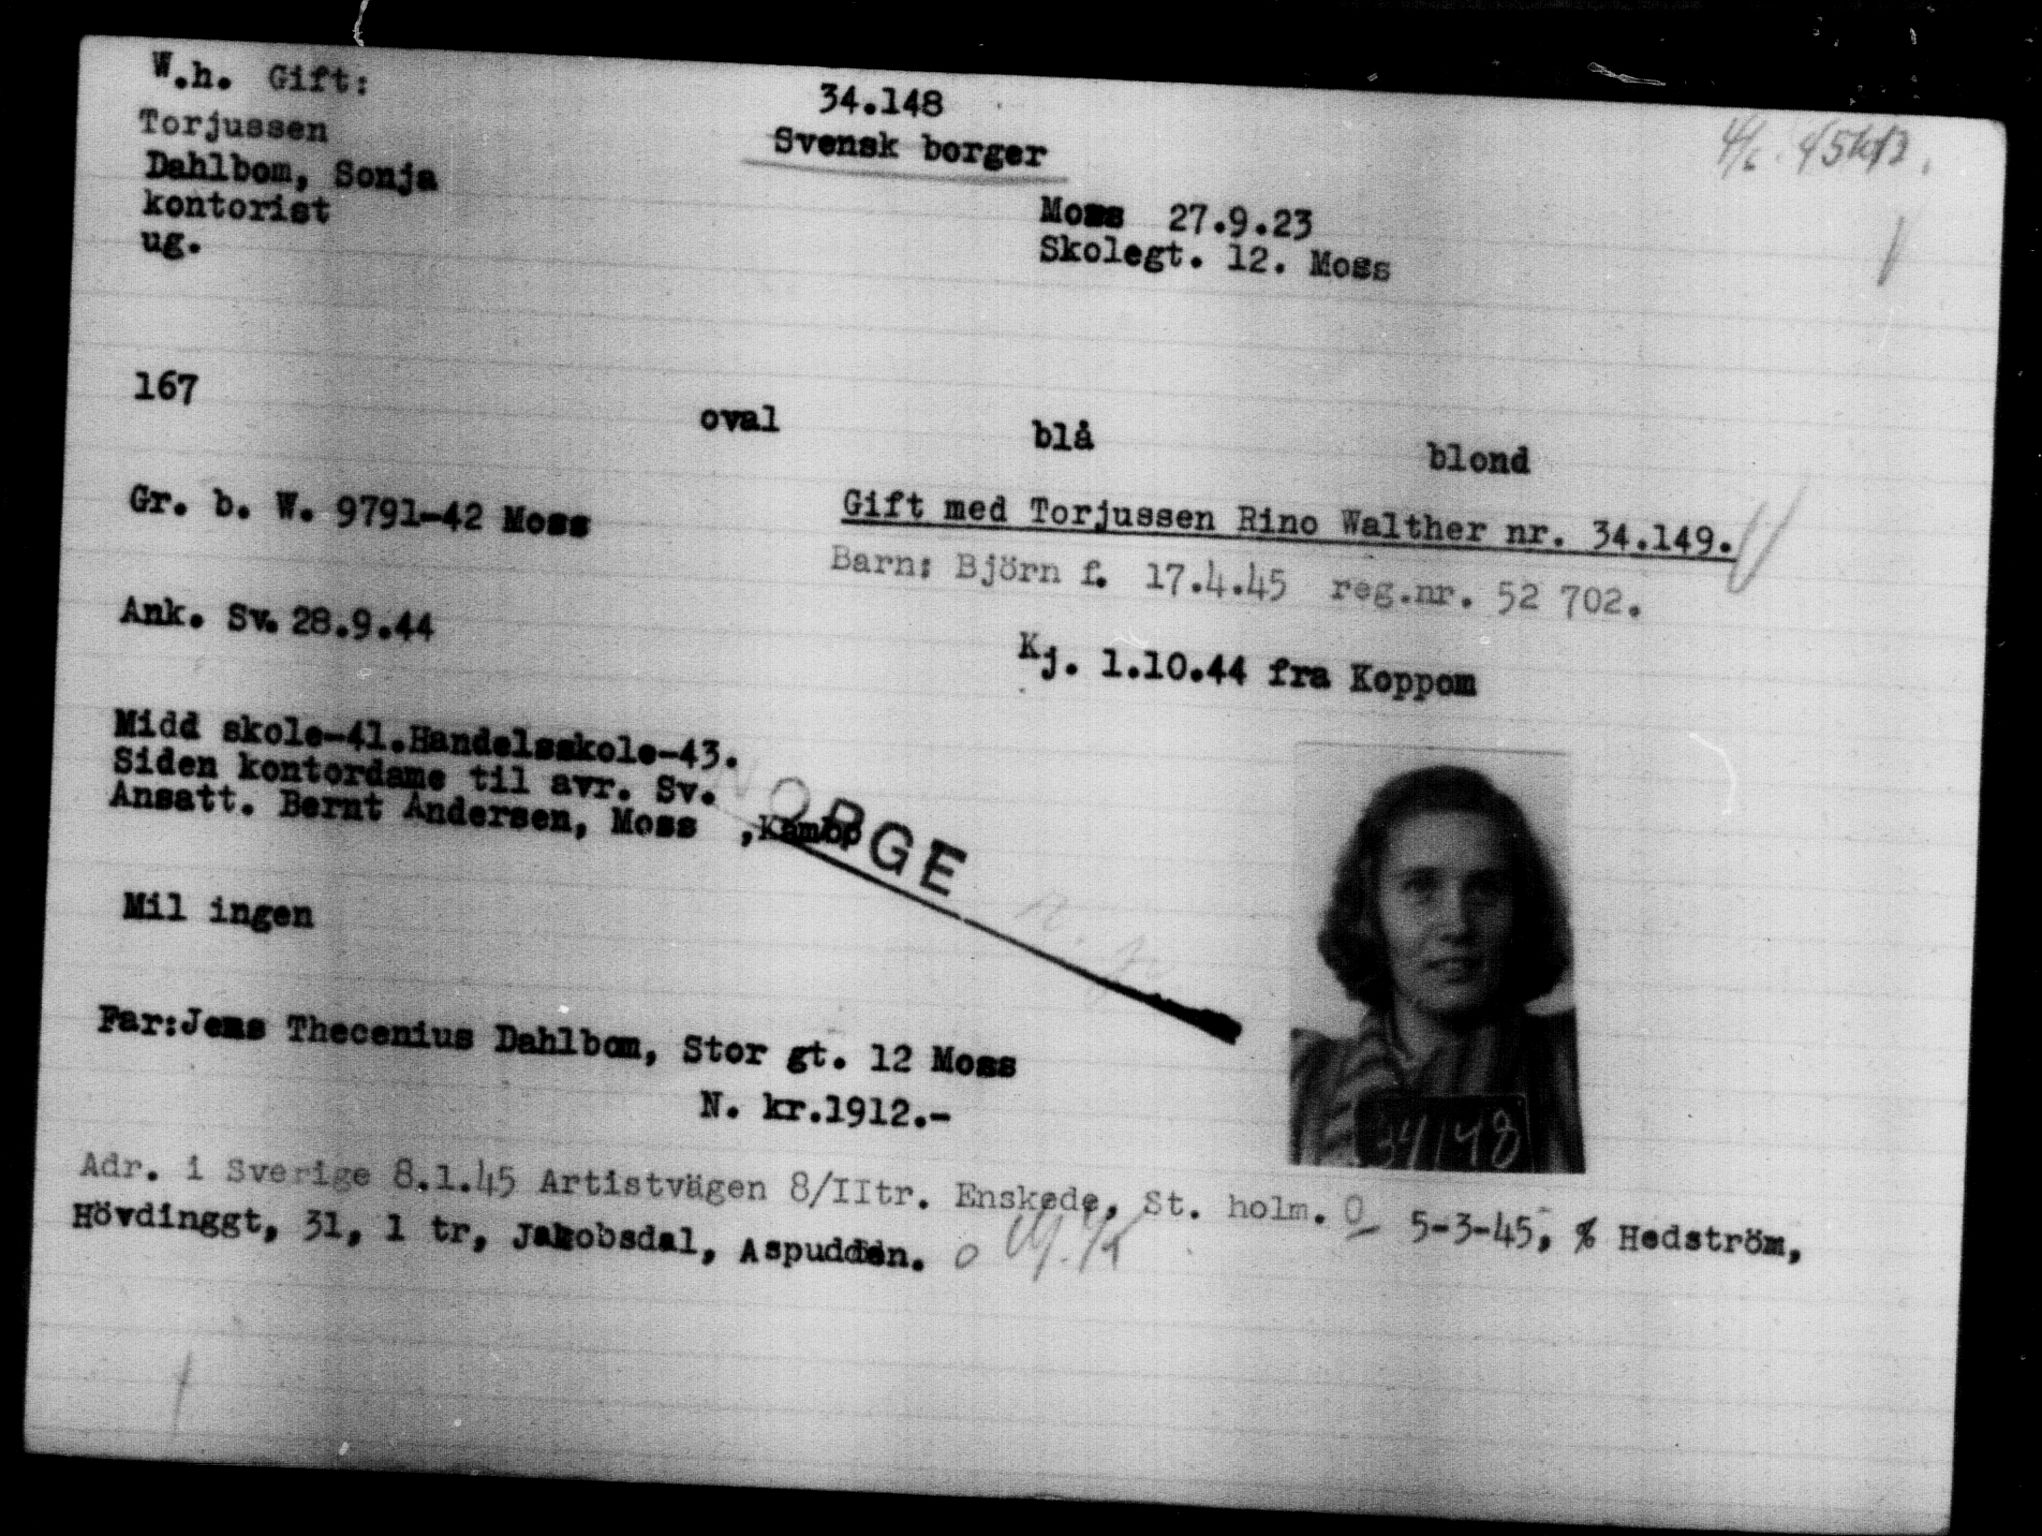 W.h. Gift:
34.148
Torjussen
Svensk borger
Dahlbom, Sonja
kontorist
Moss 27.9.23
ug.
Skolegt. 12. Moss
167
oval
blå
blond
Gr. b. W. 9791-42 Moss
Gift med Torjussen Rino Walther nr. 34.149.
Barn: Björn f. 17.4.45 reg.nr. 52 702.
Ank. Sv. 28.9.44
Kj. 1.10.44 fra Koppom
Midd skole-41.Handelsskole-43.
Siden kontordame til avr. Sv.
Ansatt. Bernt Andersen, Moss
NORGE
Mil ingen
Far:Jens Thecenius Dahlbom, Stor gt. 12 Moss
N. kr.1912.-
34148
Adr. i Sverige 8.1.45 Artistvägen 8/IItr. Enskede, St. holm. O 5-3-45, % Hedström,
Hövdinggt, 31, 1 tr, Jakobsdal, Aspudden. o